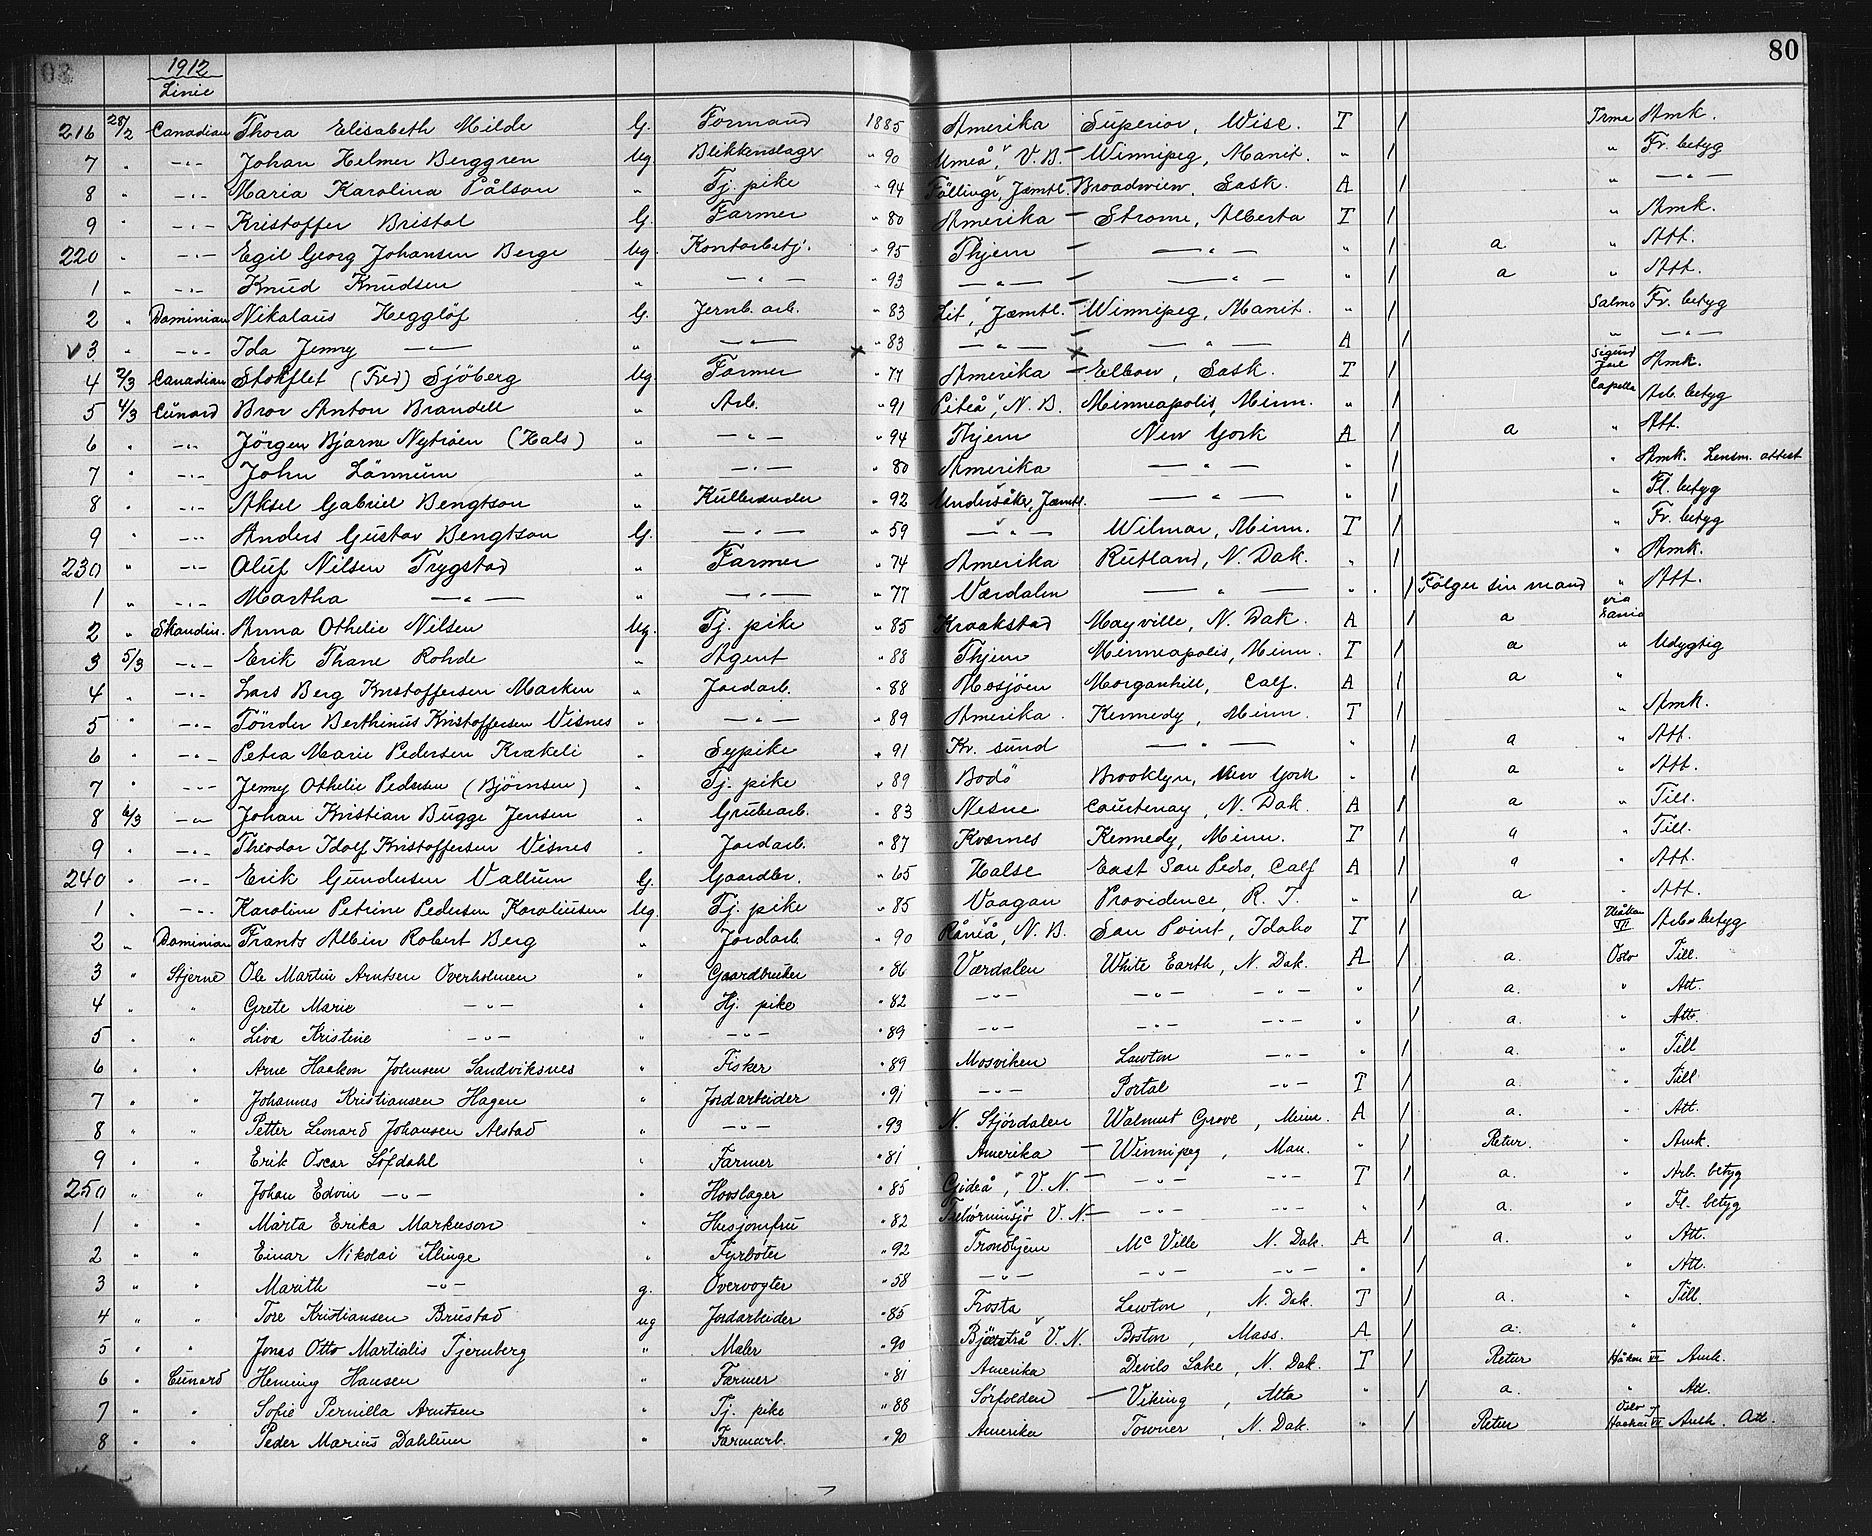 80
1912
Linie
216 28/2 Canadian Thora Elisabeth Milde G. Formand 1885 Amerika Superior, Wisc. T / Irma Amk.
7 " -"- Johan Helmer Berggren Ug. Blikkenslager " 90 Umeå, V. B. - Winnipeg, Manit. " / " Fr. betyg
8 " -"- Maria Karolina Pålson " Tj. pike " 94 Föllinge, Jæmtl. - Broadview, Sask. A / " -"-
9 " -"- Kristoffer Bristol G. Farmer " 80 Amerika - Strome, Alberta T / " Amk.
220 " -"- Egil Georg Johansen Berge Ug. Kontorbetj. " 95 Thjem - -"- " / a " Att.
1 " -"- Knud Knudsen " -"- " 93 -"- - -"- " / a " Att.
2 " Dominian Nikolaus Hegglöf G. Jernb. arb. " 83 Lit, Jæmtl. - Winnipeg, Manit. " / Salmo Fr. betyg
✓3 " -"- Ida Jenny -"- " -"- × " 83 -"- × -"- A / " -"-
4 2/3 Canadian Stokflet (Fred) Sjöberg Ug Farmer " 77 Amerika - Elbow, Sask. T / Sigurd Jarl Amk.
5 4/3 Cunard Bror Anton Brandell " Arb. " 91 Piteå, N. B. Minneapolis, Minn. " / Capella Arb. betyg
6 " -"- Jörgen Bjarne Nytröen (Hals) " -"- " 94 Thjem New York A / a " Att.
7 " -"- John Lönnum " -"- " 80 Amerika -"- " / " Amk. Lensm. attest
8 " -"- Aksel Gabriel Bengtson " " 92 Undersåker, Jæmtl. -"- " / " Fl. betyg
9 " -"- Anders Gustav Bengtson G. -"- " 59 -"- Wilmar, Minn. T / " Fr. betyg
230 " -"- Oluf Nilsen Trygstad " Farmer " 74 Amerika Rutland, N. Dak. " / " Amk.
1 " -"- Martha -"- " -"- " 77 Værdalen -"- " / Følger sin mand " Att.
2 " Skandin. Anna Othelie Nilsen Ug. Tj. pike " 85 Kraakstad Mayville, N. Dak. A / a via
3 5/3 -"- Erik Thane Rohde " Agent " 88 Thjem Minneapolis, Minn. T / a " Udygtig
4 " -"- Lars Berg Kristoffersen Marken " Jordarb. " 88 Mosjöen Morganhill, Calf. A / a "
5 " -"- Tönder Berthinus Kristoffersen Visnes " -"- " 89 Amerika Kennedy, Minn. T / " Amk.
6 " -"- Petra Marie Pedersen Krakeli " Sypike " 91 Kr. sund -"- " / a " Att.
7 " -"- Jenny Othelie Pedersen (Bjørnsen) " Tj. pike " 89 Bodö Brooklyn, New York " / a " Att.
8 6/3 -"- Johan Kristian Bugge Jensen " Grubearb. " 83 Nesne Courtenay, N. Dak. A / a " Till.
9 " -"- Theodor Idolf Kristoffersen Visnes " Jordarb. " 87 Kværnes Kennedy, Minn. T / a " Till.
240 " -"- Erik Gundersen Vallum G. Gaardbr. " 65 Halse East San Pedro, Calf A / a " Att.
1 " -"- Karoline Petrine Pedersen Karoliussen Ug. Tj. pike " 85 Vaagan Providence, R. I. " / a " Att.
2 " Dominian Frants Albin Robert Berg " Jordarb. " 90 Råneå, N. B. San Point, Idaho T / Haakon VII Arb. betyg
3 " Stjerne Ole Martin Arntsen Overholmen " Gaardbruker " 86 Værdalen White Earth, N. Dak. A / a. Oslo Till.
4 " " Grete Marie -"- " Hj. pike " 82 -"- -"- -"- " / a. " Att.
5 " " Liva Kristine -"- " -"- " 89 -"- -"- -"- " / a. " Att.
6 " " Arne Haakon Johnsen Sandviksnes " Fisker " 89 Mosviken Lawton -"- " / a. " Till
7 " " Johannes Kristiansen Hagen " Jordarbeider " 91 -"- Portal -"- T / a. " Till
8 " " Petter Leonard Johansen Alstad " -"- " 93 N. Stjørdalen Walnut Grove, Minn. A / a. " Att.
9 " " Erik Oscar Löfdahl " Farmer " 81 Amerika - Winnipeg, Man. " / Retur. " Amk.
250 " " Johan Edvin -"- " Hovslager " 85 Gideå, V. N. - -"- -"- T / a. " Arb. betyg
1 " " Märta Erika Markuson " Husjomfru " 82 V. N. - -"- -"- " / a. " Fl. betyg
2 " " Einar Nikolai Klinge " Fyrböter " 92 Trondhjem Mc Ville N. Dak. A / a. " Att.
3 " " Marith -"- g. Overvogter " 58 -"- -"- -"- " / " Att.
4 " " Tore Kristiansen Brustad ug Jordarbeider " 85 Frosta Lawton, N. Dak. T / a. " Till.
5 " " Jonas Otto Martialis Tjernberg " Maler " 90 Bjärtrå V. N. Boston, Mass. A / a. "
6 " Cunard Henning Hansen " Farmer " 81 Amerika Devils Lake, N. Dak. T / Retur Håkon VII Amk.
7 " " Sofie Pernilla Arntsen " Tj. pike " 88 Sörfolden - Viking, Alta " / a. " Att.
8 " " Peder Marius Dahlum " Farmarb. " 90 Amerika Towner, N. Dak. " / Retur Oslo Haakon VII Amk. Att.